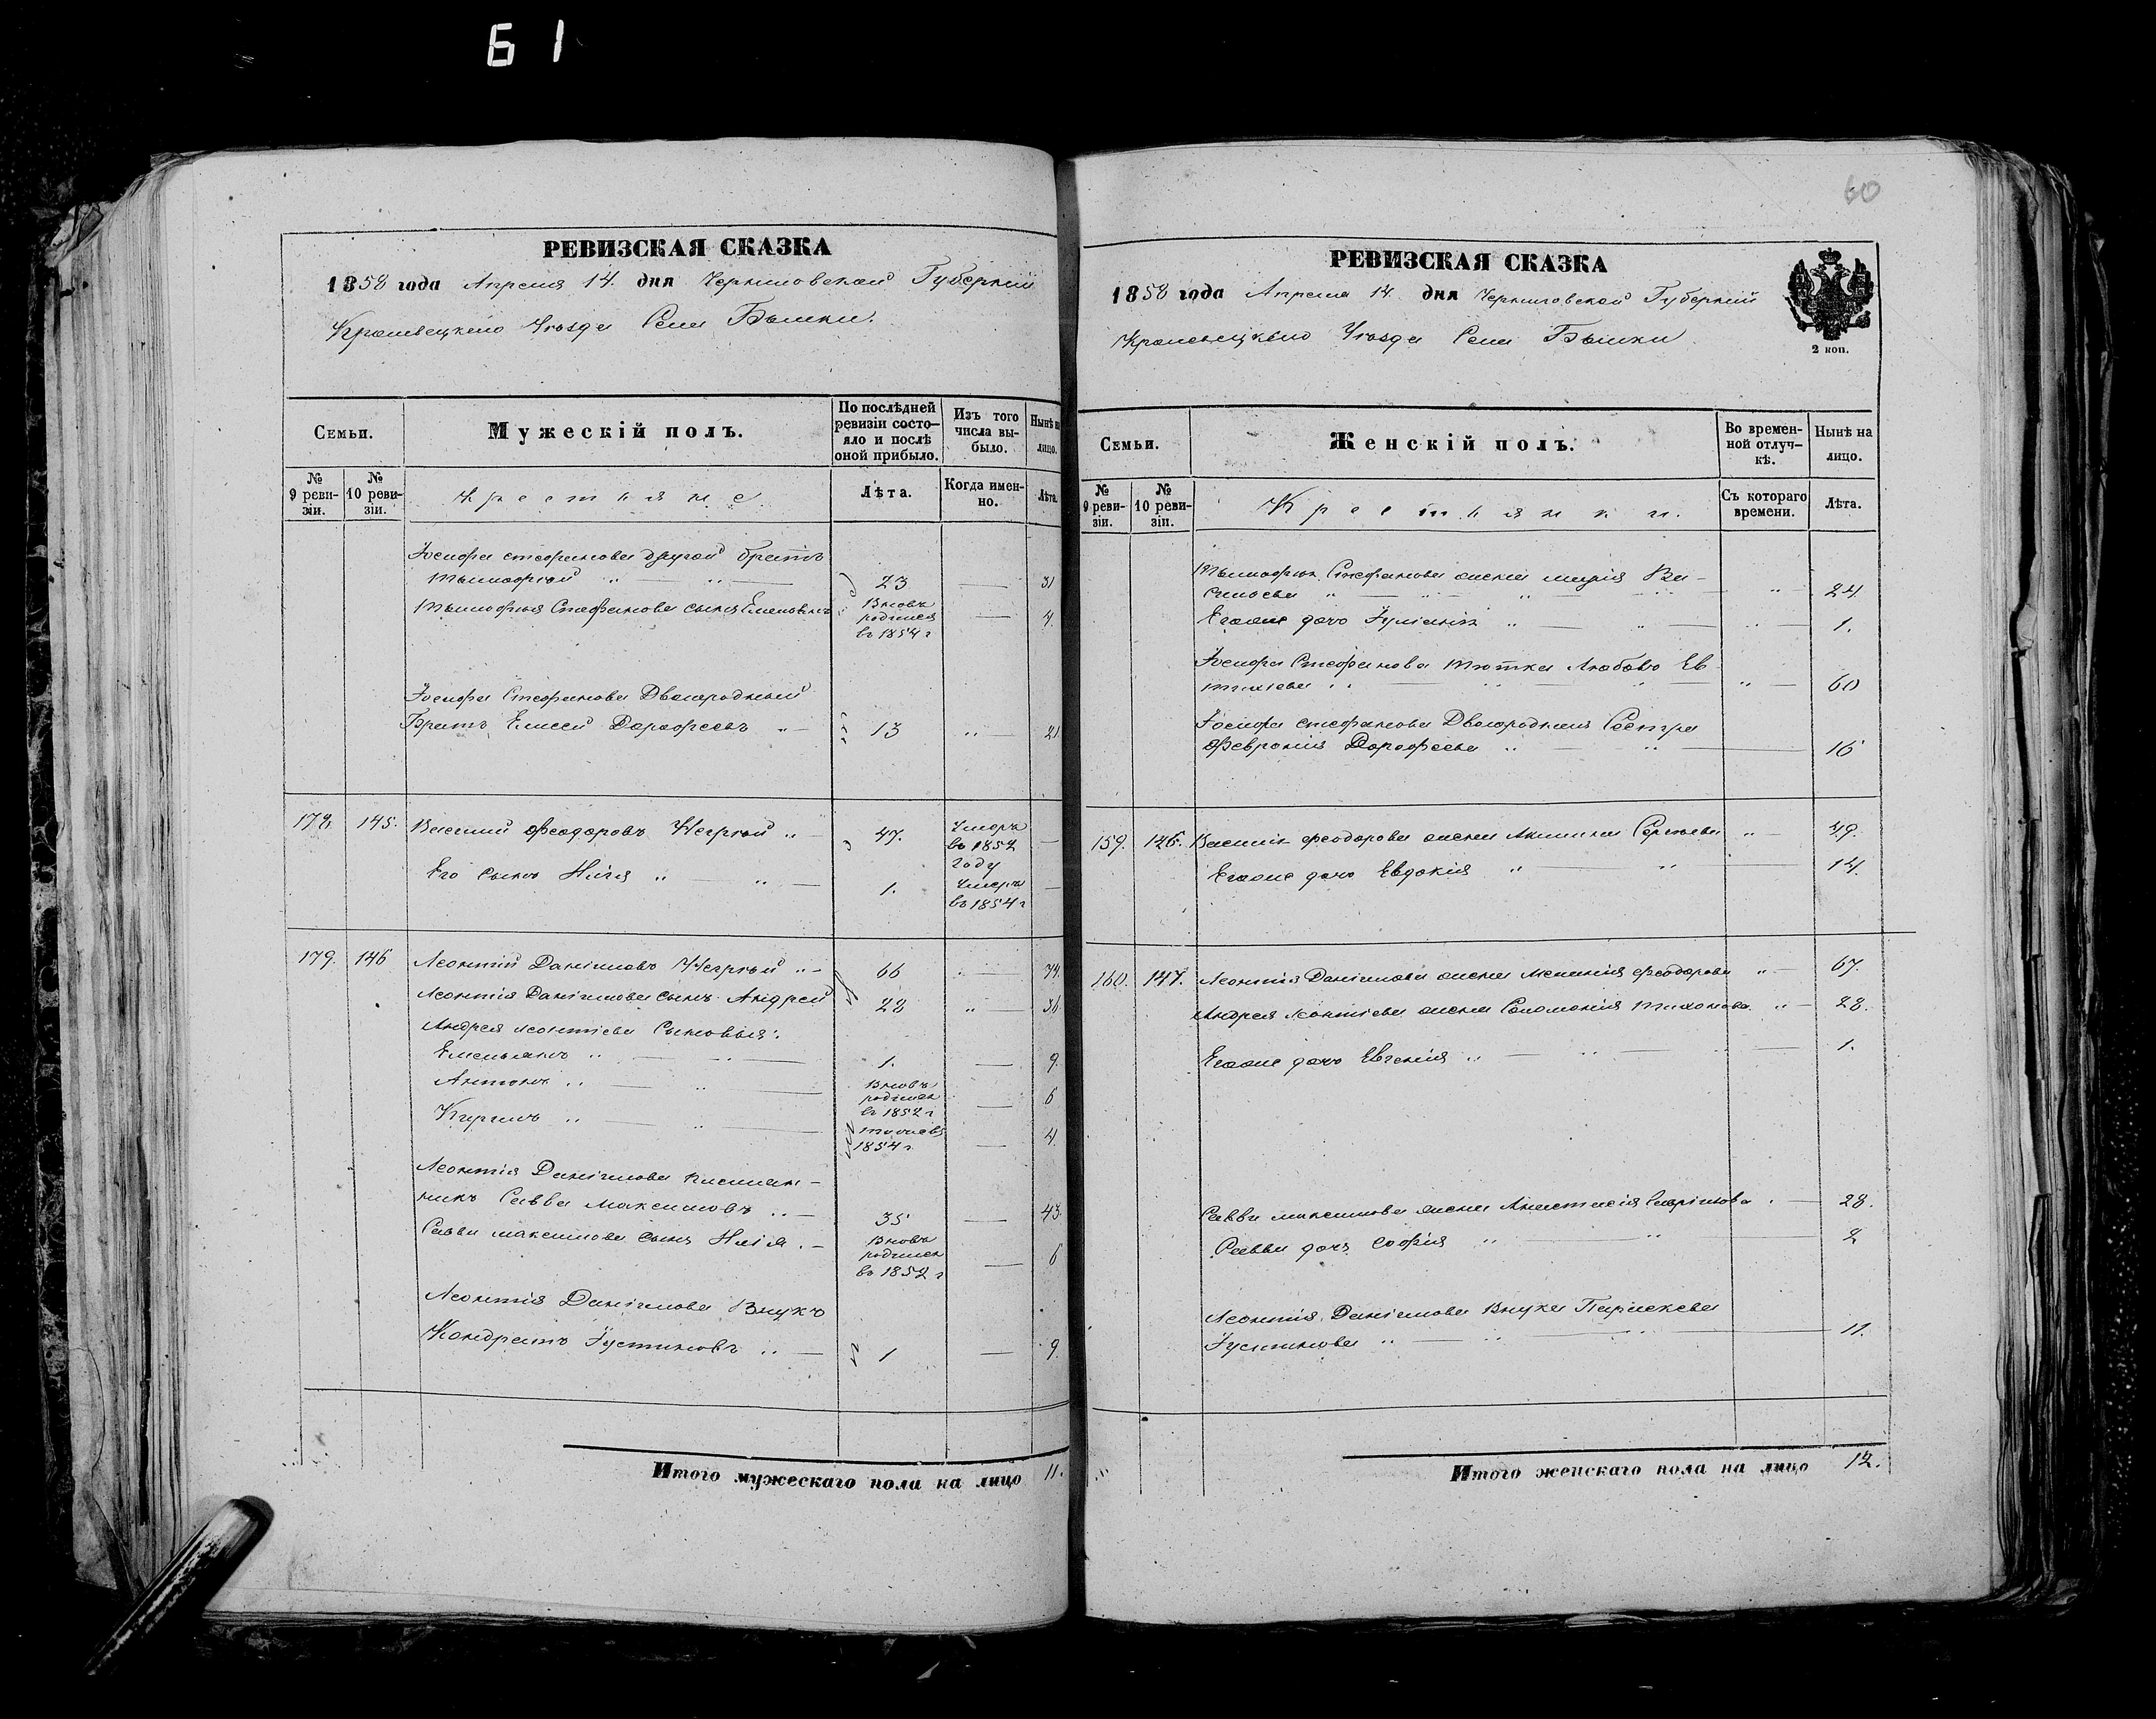 61
РЕВИЗСКАЯ СКАЗКА
1858 года Апреля 14. дня Черниговской Губерніи
Кролевецкаго Уѣзда Села Быстки.
Семьи.
Мужескій полъ.
По послѣдней ревизіи состо-
яло и послѣ
оной прибыло.
Изъ того
числа вы-
было.
Нынѣ на
лицо.
№
9 реви-
зіи.
№
10 реви-
зіи.
Крестьяне
Лѣта.
Когда имен-
но.
Лѣта.
Іосифа Стефанова другой братъ
Тимофѣй „ — „ — 23 — 31
Тимофѣя Стефанова сынъ Емельянъ Вновь
родился
въ 1854 г — 4.
Іосифа Стефанова Двоюродный
Братъ Елисей Дорофеевъ „ — 13 „ — 21
178. 145. Василий Феодоровъ „ — 47. Умеръ
въ 1852
году —
Его сынъ Илія „ „ — 1. Умеръ
въ 1854 г —
179. 146 Леонтій Даніиловъ „ — 66 „ — 74.
Леонтія Даніилова сынъ Андрей 28 „ — 36
Андрея Леонтіева Сыновья:
Емельянъ „ — „ — 1. — 9.
Антонъ „ — „ — Вновь
родился
въ 1852 г — 6
Кирилъ „ — „ — тожъ въ
1854 г. — 4.
Леонтія Даніилова племян-
никъ Савва Максимовъ „ — 35 — 43.
Саввы Максимова сынъ Илія. — Вновь
родился
въ 1852 г — 6
Леонтія Даніилова Внукъ
Кондратъ Іустиновъ „ — 1 — 9.
Итого мужескаго пола на лицо 11.
60
РЕВИЗСКАЯ СКАЗКА
1858 года Апреля 14. дня Черниговской Губерніи
Кролевецкаго Уѣзда Села Быстки.
2 коп.
Семьи.
Женскій полъ.
Во времен-
ной отлуч-
кѣ.
Нынѣ на
лицо.
№
9 реви-
зіи.
№
10 реви-
зіи.
Крестьянки.
Съ котораго
времени.
Лѣта.
Тимофѣя Стефанова жена Марія Ва-
сильева „ — „ — „ — 24.
Егоже дочь Іуліанія „ — „ — „ — 1.
Іосифа Стефанова тютка Любовь Ев
тихіева „ — „ — „ — 60
Іосифа Стефанова Двоюродная Сестра
Февронія Дорофеева „ — „ — 16
159. 146. Василія Феодорова жена Акилина Сергѣева „ — 49.
Егоже дочь Евдокія „ — „ — 14.
160. 147. Леонтія Даніилова жена Меланія Феодорова „ — 67.
Андрея Леонтіева жена Соломонія Тихонова „ — 28.
Егоже дочь Евгенія „ — „ — „ — 1.
Саввы Максимова жена Анастасія Гавріилова. — 28.
Саввы дочь Софія „ — „ — 2
Леонтія Даніилова Внука Параскева
Іустинова „ — „ — „ — 11.
Итого женскаго пола на лицо 12.